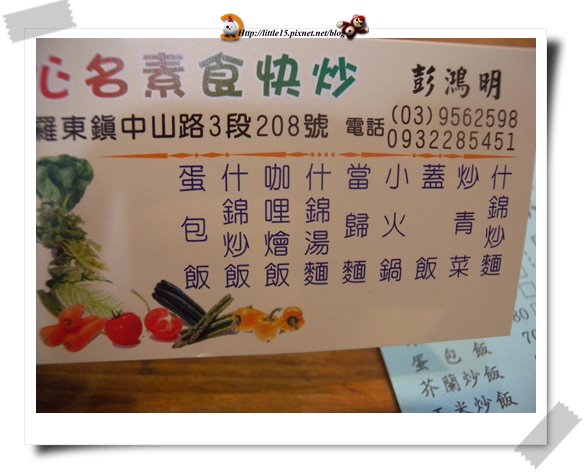 Http://little15.pixnet.net/blog
心名素食快炒
彭鴻明
羅東鎮中山路3段208號
電話
(03)9562598
0932285451
什錦炒麵
炒青菜
蓋飯
小火鍋
當歸麵
什錦湯麵
咖哩燴飯
什錦炒飯
蛋包飯
80
70
蛋包飯
芥蘭炒飯
玉米炒飯